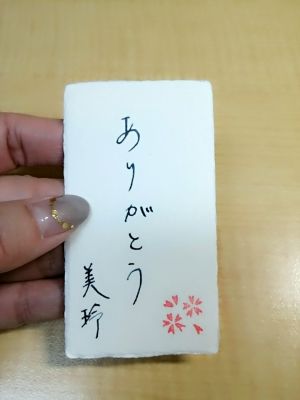 ありがとう
美玲